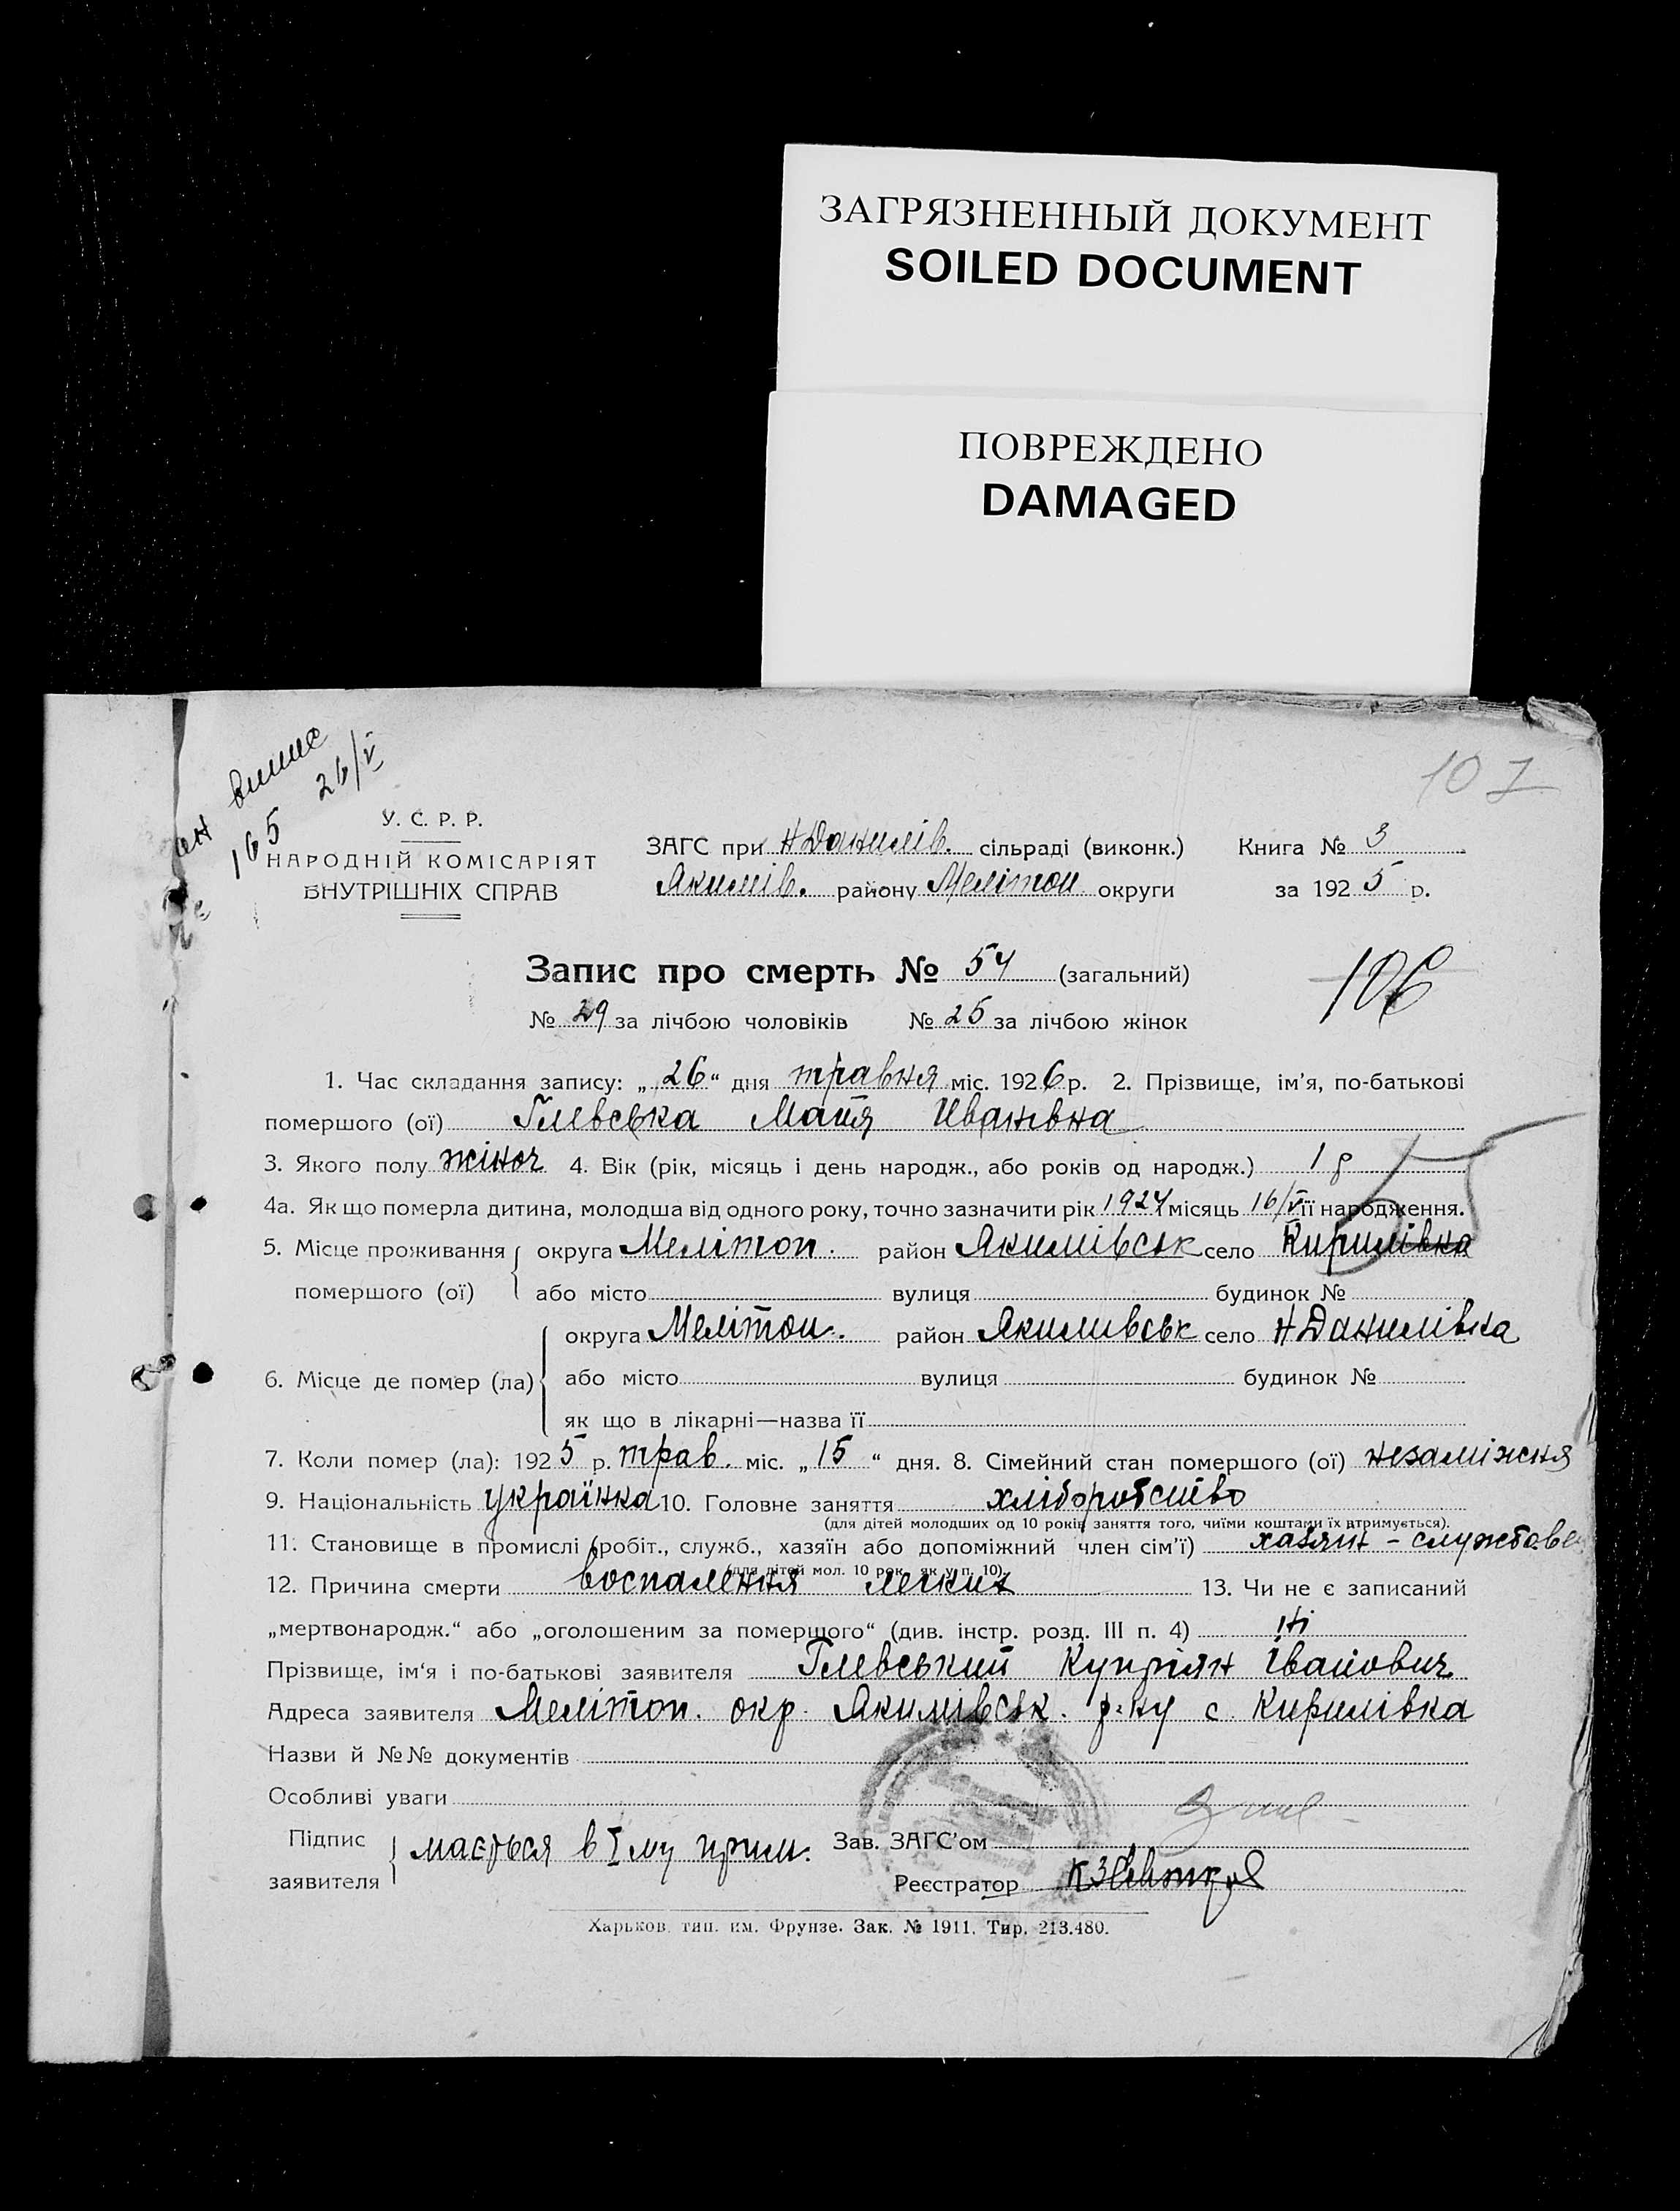 ЗАГРЯЗНЕННЫЙ ДОКУМЕНТ
SOILED DOCUMENT
ПОВРЕЖДЕНО
DAMAGED
107
165 26/V
У. С. Р. Р.
НАРОДНІЙ КОМІСАРІЯТ
ВНУТРІШНІХ СПРАВ
ЗАГС при Н Данилів. сільраді (виконк.) Книга № 3
Якимів. району Мелітоп округи за 1925 р.
Запис про смерть № 54 (загальний)
106
№ 29 за лічбою чоловіків № 25 за лічбою жінок
1. Час складання запису: „26“ дня травня міс. 1926 р. 2. Прізвище, ім'я, по-батькові
помершого (ої) Глевська Майя Іванівна
3. Якого полу жіноч 4. Вік (рік, місяць і день народж., або років од народж.) 1 р
4а. Як що померла дитина, молодша від одного року, точно зазначити рік 1924 місяць 16/V її народження.
5. Місце проживання округа Мелітоп. район Якимівськ село Кирилівка
помершого (ої) або місто вулиця будинок №
округа Мелітоп. район Якимивськ село Н Данилівка
6. Місце де помер (ла) або місто вулиця будинок №
як що в лікарні—назва її
7. Коли помер (ла): 1925 р. трав. міс. „15“ дня. 8. Сімейний стан помершого (ої) незаміжня
9. Національність українка 10. Головне заняття хліборобство
(для дітей молодших од 10 років заняття того, чиїми коштами їх втримується).
11. Становище в промислі (робіт., служб., хазяїн або допоміжний член сім'ї) хазяїн -
(для дітей мол. 10 рок. як у п. 10).
12. Причина смерти воспаления легких 13. Чи не є записаний
„мертвонародж.“ або „оголошеним за помершого“ (див. інстр. розд. III п. 4) Ні
Прізвище, ім'я і по-батькові заявителя Глевський Купріян Іванович
Адреса заявителя Мелітоп. окр. Якимівськ. р-ну с. Кирилівка
Назви й №№ документів
Особливі уваги
Підпис мається в І му прим. Зав. ЗАГС'ом
заявителя Реєстратор
Харьков. тип. им. Фрунзе. Зак. № 1911. Тир. 213.480.